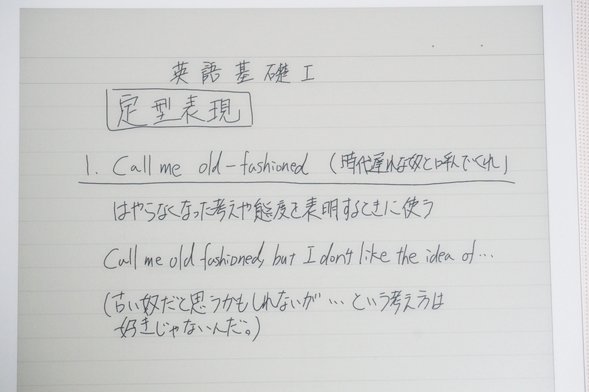 英語基礎I
定型表現
1. Call me old-fashioned (時代遅れな奴と呼んでくれ」
はやらなくなった考えや態度を表明するときに使う
Call me old fashioned, but I don't like the idea of…
(古い奴だと思うかもしれないが…という考え方は
好きじゃないんだ。)